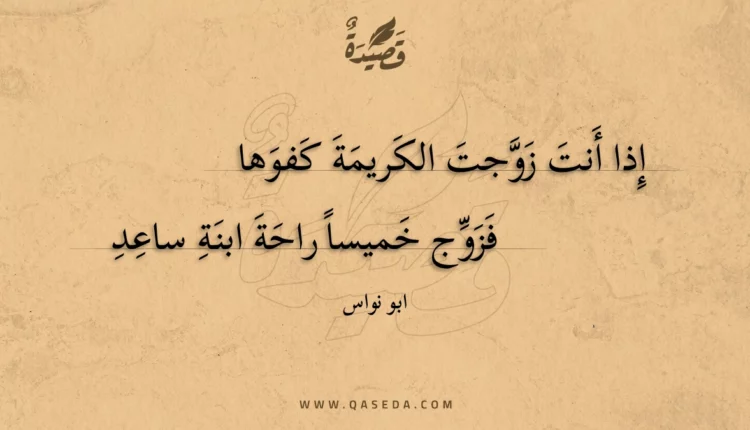 قَصِيْدَةٌ
إِذا أَنتَ زَوَّجتَ الكَريمَةَ كَفوَها
فَزَوِّج خَميساً راحَةَ ابنَةِ ساعِدِ
ابو نواس
WWW.QASEDA.COM